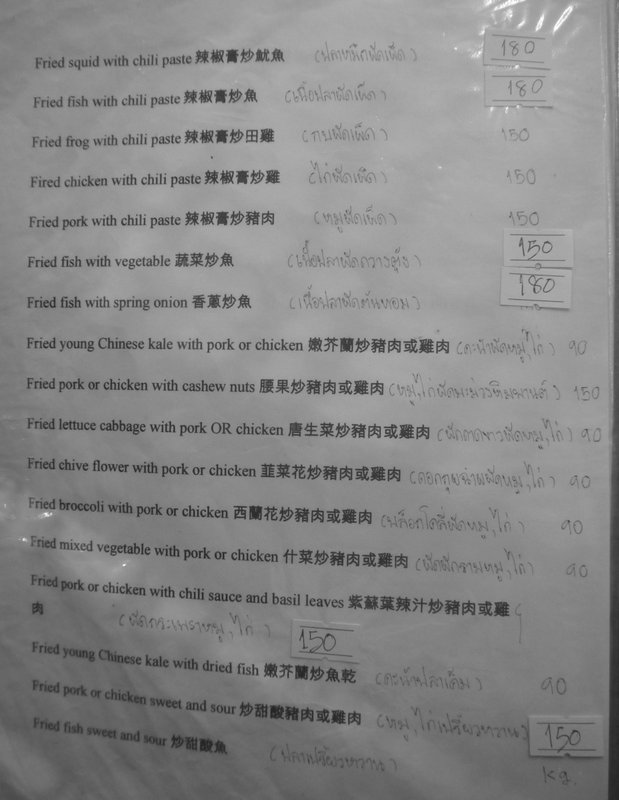 Fried squid with chili paste 辣椒膏炒魷魚 (ปลาหมึกผัดเผ็ด) 180
Fried fish with chili paste 辣椒膏炒魚 (เนื้อปลาผัดเผ็ด) 180
Fried frog with chili paste 辣椒膏炒田雞 (กบผัดเผ็ด) 150
Fired chicken with chili paste 辣椒膏炒雞 (ไก่ผัดเผ็ด) 150
Fried pork with chili paste 辣椒膏炒豬肉 (หมูผัดเผ็ด) 150
Fried fish with vegetable 蔬菜炒魚 (เนื้อปลาผัดกวางตุ้ง) 150
Fried fish with spring onion 香蔥炒魚 (เนื้อปลาผัดต้นหอม) 180
Fried young Chinese kale with pork or chicken 嫩芥蘭炒豬肉或雞肉 (คะน้าผัดหมู,ไก่) 90
Fried pork or chicken with cashew nuts 腰果炒豬肉或雞肉 (หมู,ไก่ผัดมะม่วงหิมพานต์) 150
Fried lettuce cabbage with pork OR chicken 唐生菜炒豬肉或雞肉 (ผักกาดขาวผัดหมู,ไก่) 90
Fried chive flower with pork or chicken 韮菜花炒豬肉或雞肉 (ดอกกุยฉ่ายผัดหมู,ไก่) 90
Fried broccoli with pork or chicken 西蘭花炒豬肉或雞肉 (บล็อกโคลี่ผัดหมู,ไก่) 90
Fried mixed vegetable with pork or chicken 什菜炒豬肉或雞肉 (ผัดผักรวมหมู,ไก่) 90
Fried pork or chicken with chili sauce and basil leaves 紫蘇葉辣汁炒豬肉或雞
肉 (ผัดกระเพราหมู,ไก่) 150
Fried young Chinese kale with dried fish 嫩芥蘭炒魚乾 (คะน้าปลาเค็ม) 90
Fried pork or chicken sweet and sour 炒甜酸豬肉或雞肉 (หมู,ไก่เปรี้ยวหวาน) 150
Fried fish sweet and sour 炒甜酸魚 (ปลาเปรี้ยวหวาน) Kg.